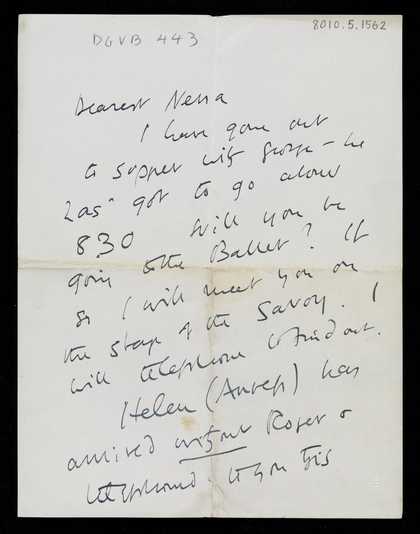 8010.5.1562
DGVB 443
Dearest Nessa
I have gone out
to supper with George – he
has got to go about
830 Will you be
going to the Ballet? If
so I will meet you on
the steps of the Savoy. I
will telephone & find out.
Helen (Anrep) has
arrived without Roger &
telephoned to you this